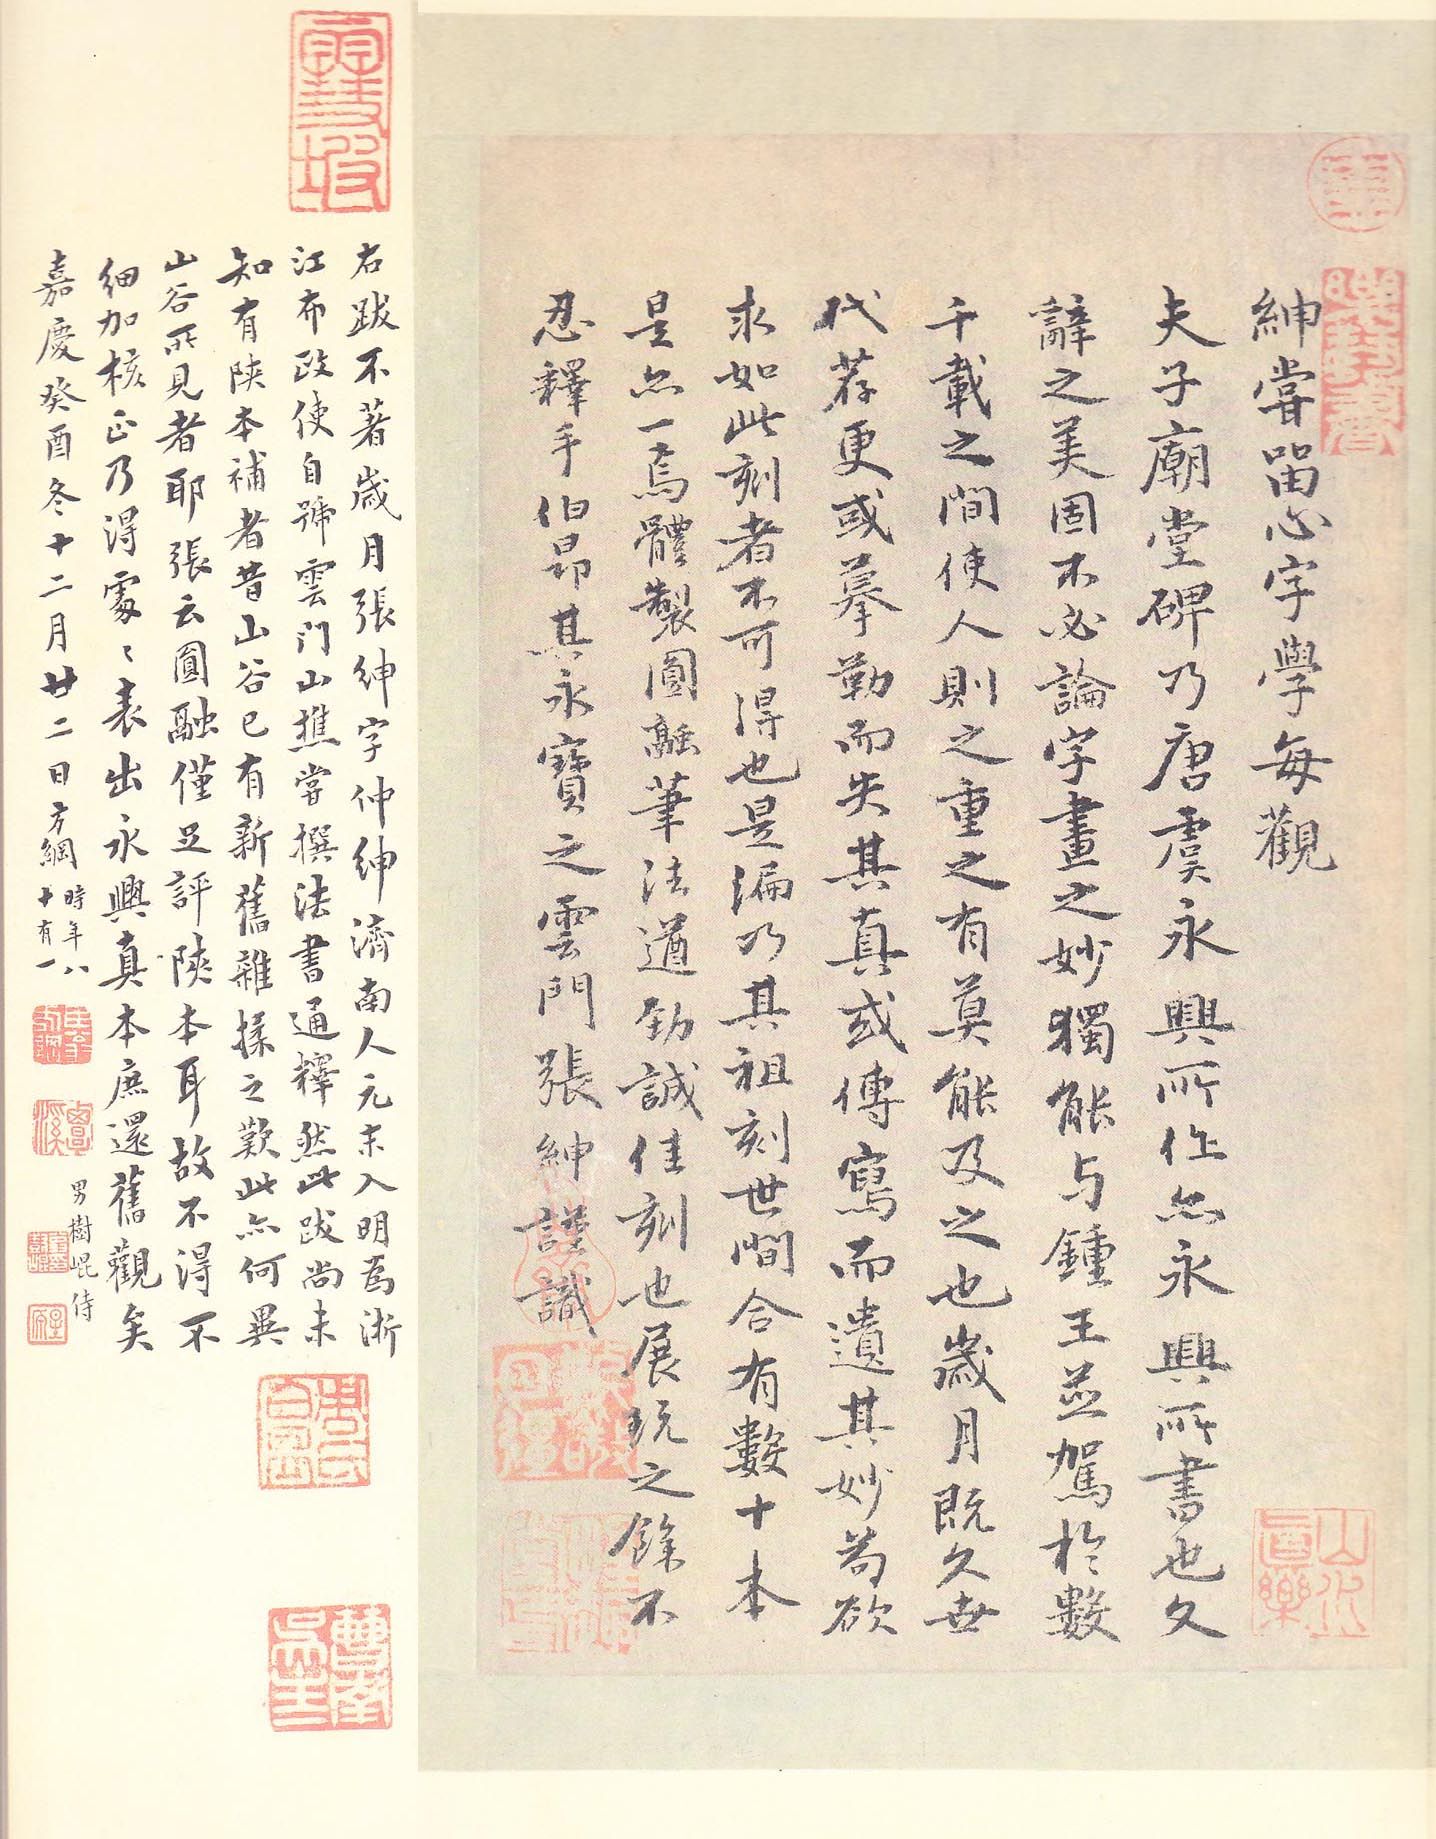 紳嘗留心字學每觀
夫子廟堂碑乃唐虞永興所作亦永興所書也文
辭之美固不必論字畫之妙獨能与鍾王並駕於數
千載之間使人則之重之有莫能及之也歲月既久世
代荐更或摹勒而失其真或傳寫而遺其妙苟欲
求如此刻者不可得也是編乃其祖刻世間合有數十本
是亦一焉體製圓融筆法遒勁誠佳刻也展玩之餘不
忍釋手伯昂其永寶之雲門張紳謹識
右跋不著歲月張紳字仲紳濟南人元末入明爲浙
江布政使自號雲門山樵嘗撰法書通釋然此跋尚未
知有陝本補者昔山谷已有新舊雜揉之歎此亦何異
山谷所見者耶張云圓融僅足評陝本耳故不得不
細加核正乃得處〻表出永興真本庶還舊觀矣
嘉慶癸酉冬十二月廿二日方綱時年八
十有一
男樹崐侍